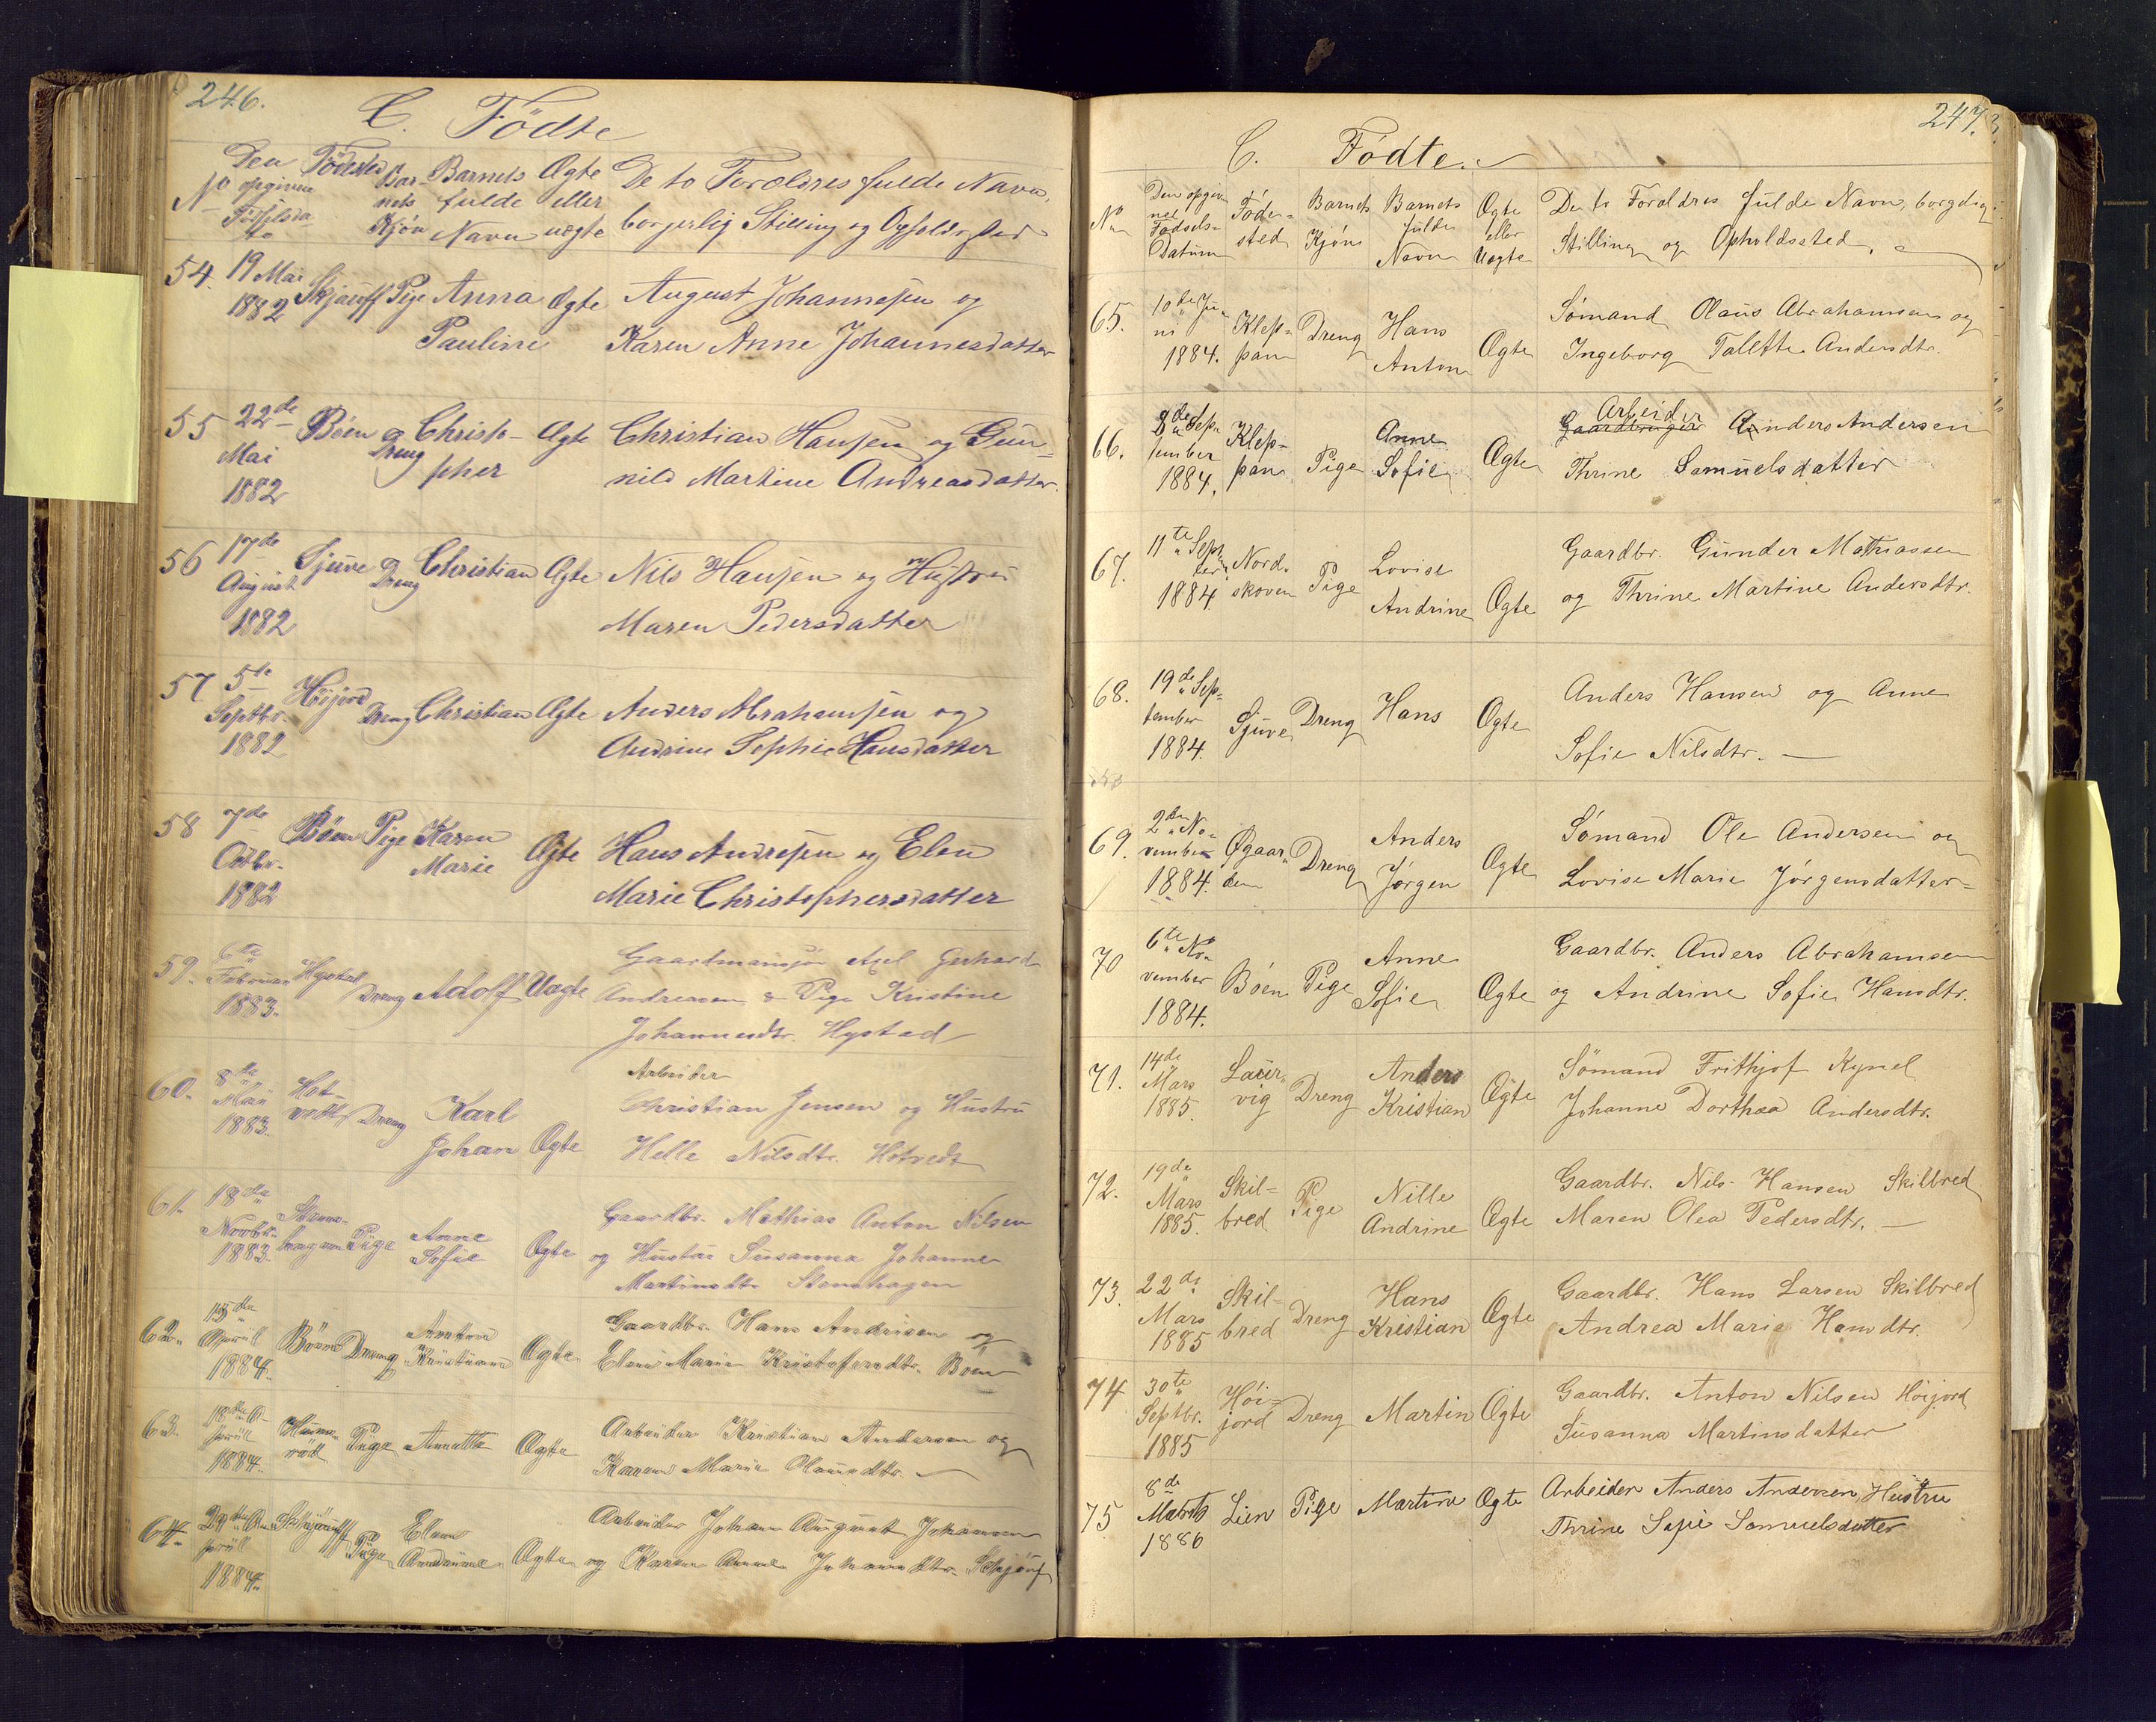 246.
C. Födte
No
Den opgivne Födselsdato
Födested
Barnets Kjön
Barnets fulde Navn
Ægte eller uægte
De to Forældres fulde Navn,
borgerlig Stilling og Opholdssted
54. 19 Mai 1882 Skjauff Pige Anna Pauline Ægte August Johannesen og
Karen Anne Johannesdatter
55 22de Mai 1882 Böen Dreng Christopher Ægte Christian Hansen og Gunnild Martine Andreasdatter.
56 17de August 1882 Sjuve Dreng Christian Ægte Nils Hansen og Hustru
Maren Pedersdatter
57 5te Septbr. 1882 Höijord Dreng Christian Ægte Anders Abrahamsen og
Andrine Sophie Hansdatter
58 7de Octbr. 1882 Böen Pige Karen Marie Ægte Hans Andresen og Elen
Marie Christophersdatter
59. 6te Februar 1883. Hystad Dreng Adolf Uægte Gaardmansön Axel Gerhard
Andresen & Pige Kristine
Johannesdtr. Hystad
60. 8de Mai 1883. Hotvedt Dreng Karl Johan Ægte Arbeider
Christian Jensen og Hustru
Helle Nilsdtr. Hotvedt
61. 18de Novbr. 1883. Stenshagen Pige Anne Sofie Ægte Gaardbr. Mathias Anton Nilsen
og Hustru Susanna Johanne
Martinsdtr. Stenshagen
62. 15de April 1884. Böen Dreng Anton Kristian Ægte Gaardbr. Hans Andrisen og
Elen Marie Kristofersdtr. Böen
63. 18de April 1884. Pige Annette Ægte Arbeider Kristian Andersen og
Karen Marie Olausdtr.
64. 29de April 1884. Pige Elen Andrine Ægte Arbeider Johan August Johansen
og Karen Anne Johannesdtr. Skjauf
247.
C. Födte.
No
Den opgivne Födsels-Datum
Födested
Barnets Kjön
Barnets fulde Navn
Ægte eller Uægte
De to Foraldres fulde Navn, borgelige
Stilling og Opholdssted.
65. 10de Juni 1884. Kleppan Dreng Hans Anton Ægte Sömand Olaus Abrahamsen og
Ingeborg Talette Andersdtr.
66. 8de September 1884. Kleppan Pige Anne Sofie Ægte Arbeider
Gaardbruger Anders Andersen
Thrine Samuelsdatter
67. 11te September 1884 Nordskoven Pige Lovise Andrine Ægte Gaardbr. Gunder Mathiassen
og Thrine Martine Andersdtr.
68. 19de September 1884. Sjuve Dreng Hans Ægte Anders Hansen og Anne
Sofie Nilsdtr.
69. 2den November 1884. Øgaarden Dreng Anders Jörgen Ægte Sömand Ole Andersen og
Lovise Marie Jörgensdatter
70 6te November 1884. Böen Pige Anne Sofie Ægte Gaardbr. Anders Abrahamsen
og Andrine Sofie Hansdtr.
71. 14de Mars 1885. Laurvig Dreng Anders Kristian Ægte Sömand Frithjof Kynel
Johanne Dorthea Andersdtr.
72. 19de Mars 1885. Skilbred Pige Nille Andrine Ægte Gaardbr. Nils Hansen Skilbred
Maren Olea Pedersdtr.
73. 22de Mars 1885 Skilbred Dreng Hans Kristian Ægte Gaardbr. Hans Larsen Skilbred
Andrea Marie Hansdtr.
74 30te Septbr. 1885 Höijord Dreng Martin Ægte Gaardbr. Anton Nilsen Höijord
Susanna Martinsdatter
75 8de Marts 1886 Lien Pige Martine Ægte Arbeider Anders Andersen, Hustru
Thrine Sofie Samuelsdatter